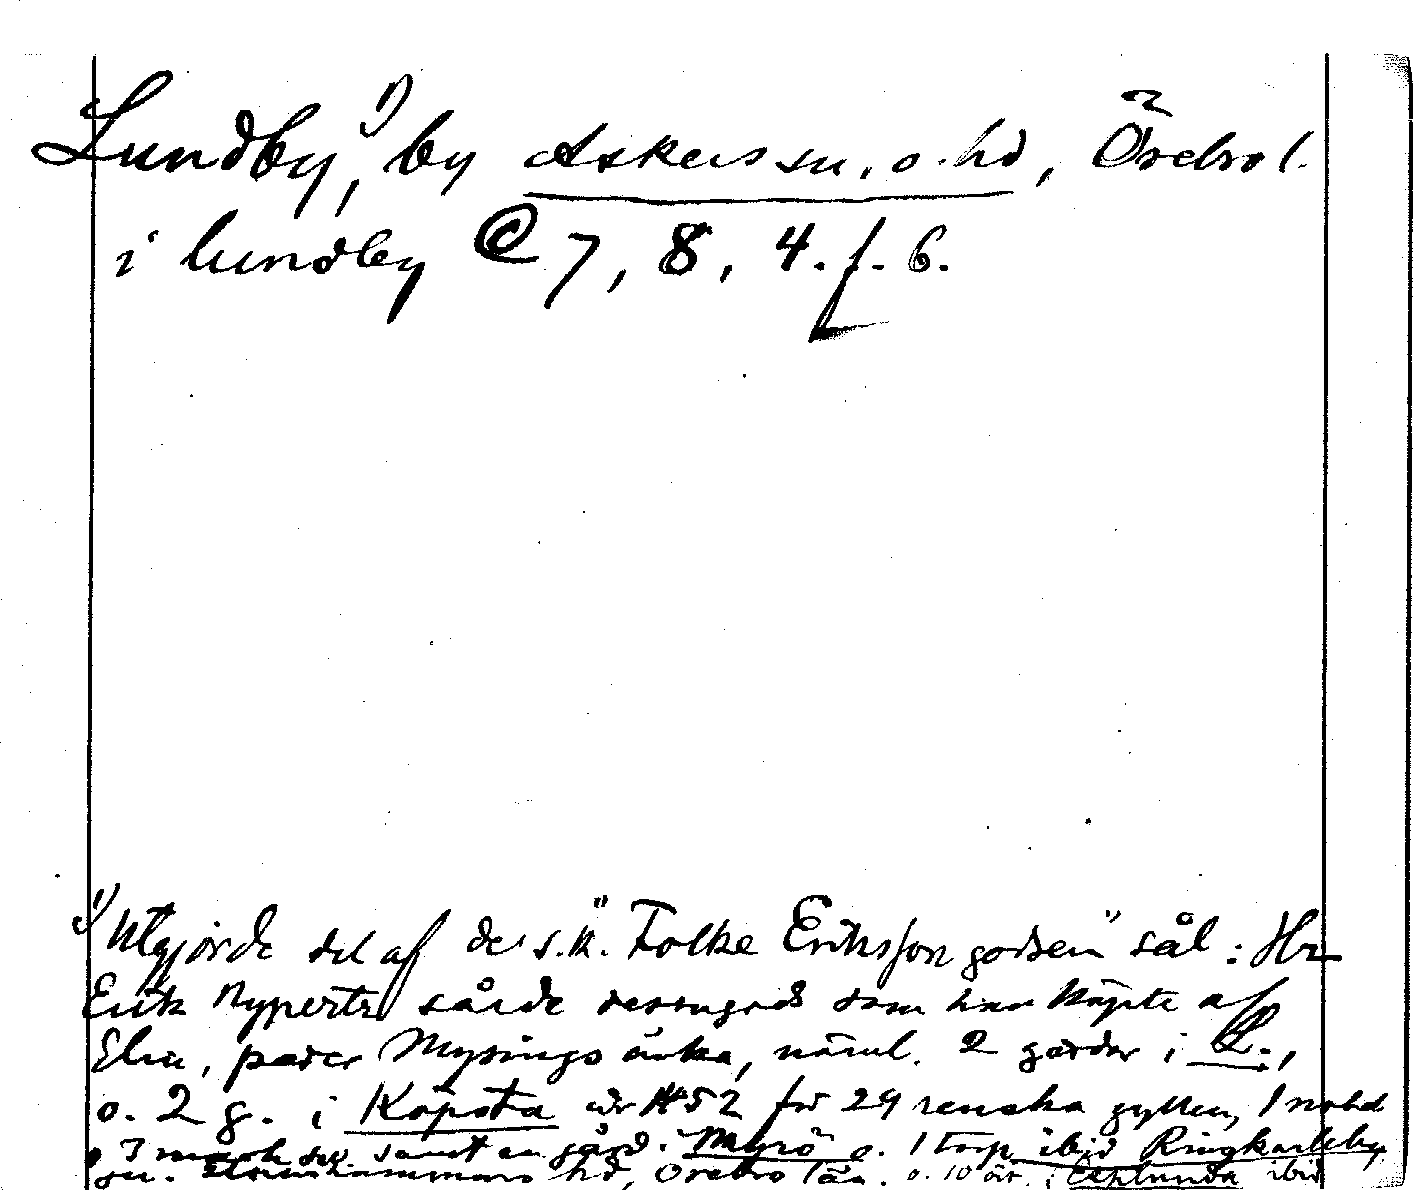 Lundby,¹⁾ by Askers sn. o. hd, Örebro l.
i Lundby @ 7, 8, 4. f. 6.
¹⁾ Utgjorde del af de s.k. "Folke Eriksson godsen" sål: Hr
Erik Nypertz sålde dessa gods som han köpte af
Elin, peder Mysings änka, näml. 2 gårdar i L.,
o. 2 g. i Köpsta för 29 renska gyllen, 1 nobel
o 3 mark sv. samt en gård i Myrö o. 1 torp ibid Ringkarleby
sn. hd, Örebro län. o. 10 ör. i Esplunda ibid